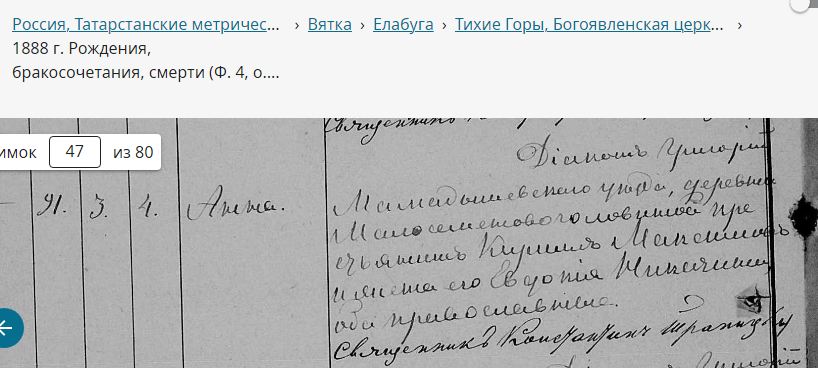 Россия, Татарстанские метричес... › Вятка › Елабуга › Тихие Горы, Богоявленская церк... ›
1888 г. Рождения,
бракосочетания, смерти (Ф. 4, о....
Священникъ
имок 47 из 80
Діаконъ Григорій
91. 3. 4. Анна.
Мамадышевскаго уѣзда, деревни
кре
стьянинъ Кирилъ Максимовъ
и жена его Евдокія
оба православные.
Священникъ Константинъ
Григорій